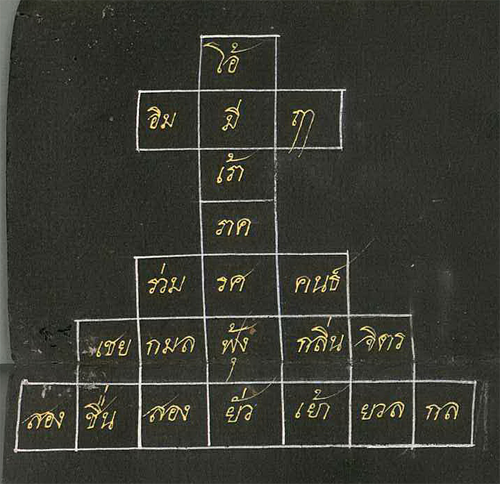 โอ้
อิม มี่ ฤๅ
เร้า
ราค
ร่วม รศ คนธ์
เชย กมล ฟุ้ง กลิ่น จิตร
สอง ชื่น สอง ยั่ว เย้า ยวล กล